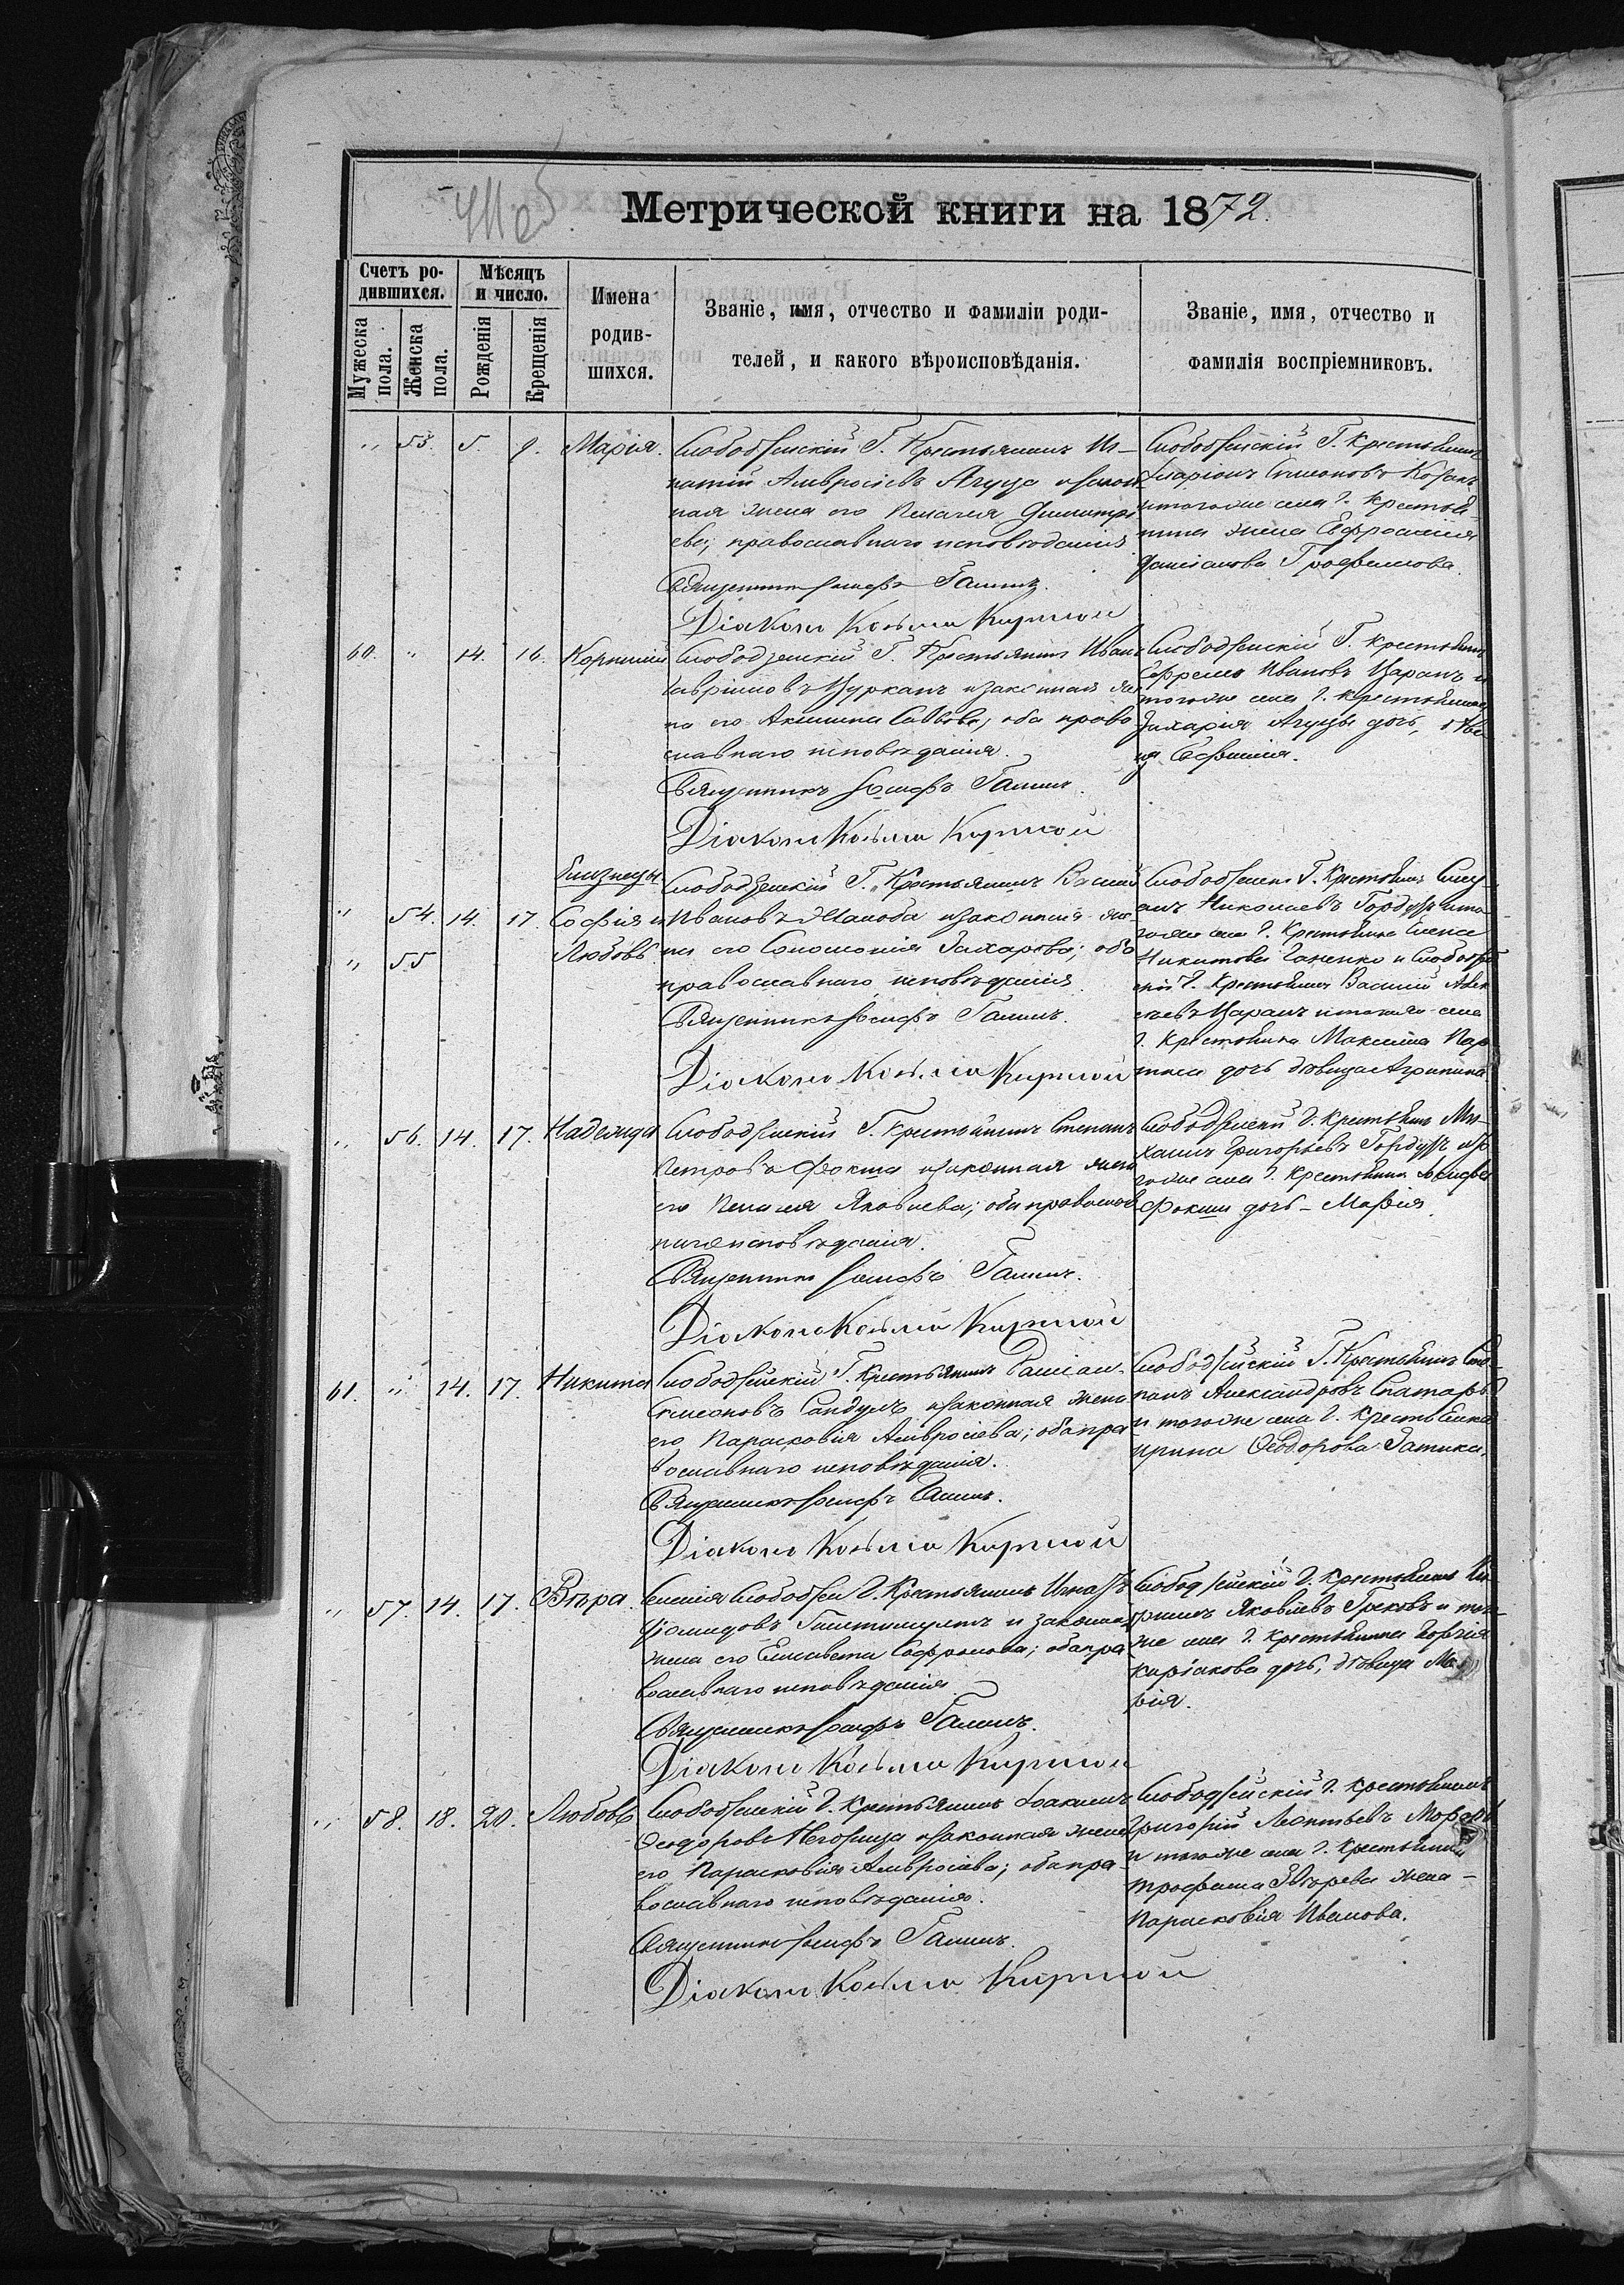 Метрической книги на 1872.
Счетъ ро-
дившихся.
Мѣсяцъ
и число.
Мужеска
пола.
Женска
пола.
Рожденія
Крещенія
Имена
родив-
шихся.
Званіе, имя, отчество и фамиліи роди-
телей, и какого вѣроисповѣданія.
Званіе, имя, отчество и
фамилія воспріемниковъ.
" 53. 5. 9. Марія.
Слободзейскій Г. Крестьянинъ Иг-
натій Амвросіевъ Агуца и закон-
ная жена его Пелагея Димитрі-
ева; православнаго исповѣданія
Священникъ Іосифъ Галинъ.
Діаконъ Косьма Кирмой
Слободзейскій Г. Крестьянинъ
Иларіонъ Симеоновъ Козакъ
и тогоже села Г. Крестья-
нина жена Евфросинія
Даміанова Трофимова.
60. " 14. 16. Корнилій
Слободзейскій Г. Крестьянинъ Иванъ
Гавріиловъ Цурканъ и законная же-
на его Акилина Саввова; оба право-
славнаго исповѣданія.
Священникъ Іосифъ Галинъ.
Діаконъ Косьма Кирмой
Слободзейскій Г. Крестьянинъ
Ефремъ Ивановъ Царанъ и
тогоже села Г. Крестьянина
Захарія Агуцы дочь, дѣви-
ца Евфимія.
близнецы.
" 54. 14. 17. Софія и
" 55 Любовь
Слободзейскій Г. Крестьянинъ Василій
Ивановъ и законная же-
на его Соломонія Захарова; оба
православнаго исповѣданія.
Священникъ Іосифъ Галинъ.
Діаконъ Косьма Кирмой
Слободзейскій Г. Крестьянинъ
Николаевъ и то-
гоже села Г. Крестьянка Елена
Никитова Ганенко и Слободзей-
скій Г. Крестьянинъ Василій Алек-
сѣевъ Царанъ и тогоже села
Г. Крестьянина Максима Пар-
дочь дѣвица Агрипина
" 56. 14. 17. Надежда
Слободзейскій Г. Крестьянинъ Степанъ
Петровъ Фокша и законная жена
его Пелагея Яковлева; оба православ-
наго исповѣданія.
Священникъ Іосифъ Галинъ.
Діаконъ Косьма Кирмой
Слободзейскій Г. Крестьянинъ Ми-
хаилъ Григорьевъ и то-
гоже села Г. Крестьянина Іосифа
Фокши дочь - Марія.
61. " 14. 17. Никита
Слободзейскій Г. Крестьянинъ Даміанъ
Симеоновъ Сандулъ и законная жена
его Парасковія Амвросіева; оба пра-
вославнаго исповѣданія.
Священникъ Іосифъ Галинъ.
Діаконъ Косьма Кирмой
Слободзейскій Г. Крестьянинъ Сте-
панъ Александровъ Спатаръ
и тогоже села Г. Крестьянка
Ирина Ѳеодорова Затика.
" 57. 14. 17. Вѣра.
Селенія Слободзеи Г. Крестьянинъ
и законная
жена его Елисавета Софронова; оба пра-
вославнаго исповѣданія
Священникъ Іосифъ Галинъ.
Діаконъ Косьма Кирмой
Слободзейскій Г. Крестьянинъ Ки-
рилъ Яковлевъ Грековъ и того-
же села Г. Крестьянина Георгія
Киріакова дочь, дѣвица Ма-
рія.
" 58. 18. 20. Любовь
Слободзейскій Г. Крестьянинъ Іоакимъ
Ѳеодоровъ Негорица и законная жена
его Парасковія Амвросіева; оба пра-
вославнаго исповѣданія.
Священникъ Іосифъ Галинъ.
Діаконъ Косьма Кирмой
Слободзейскій Г. Крестьянинъ
Григорій Леонтьевъ
и тогоже села Г. Крестьянина
Трофима жена -
Парасковія Иванова.